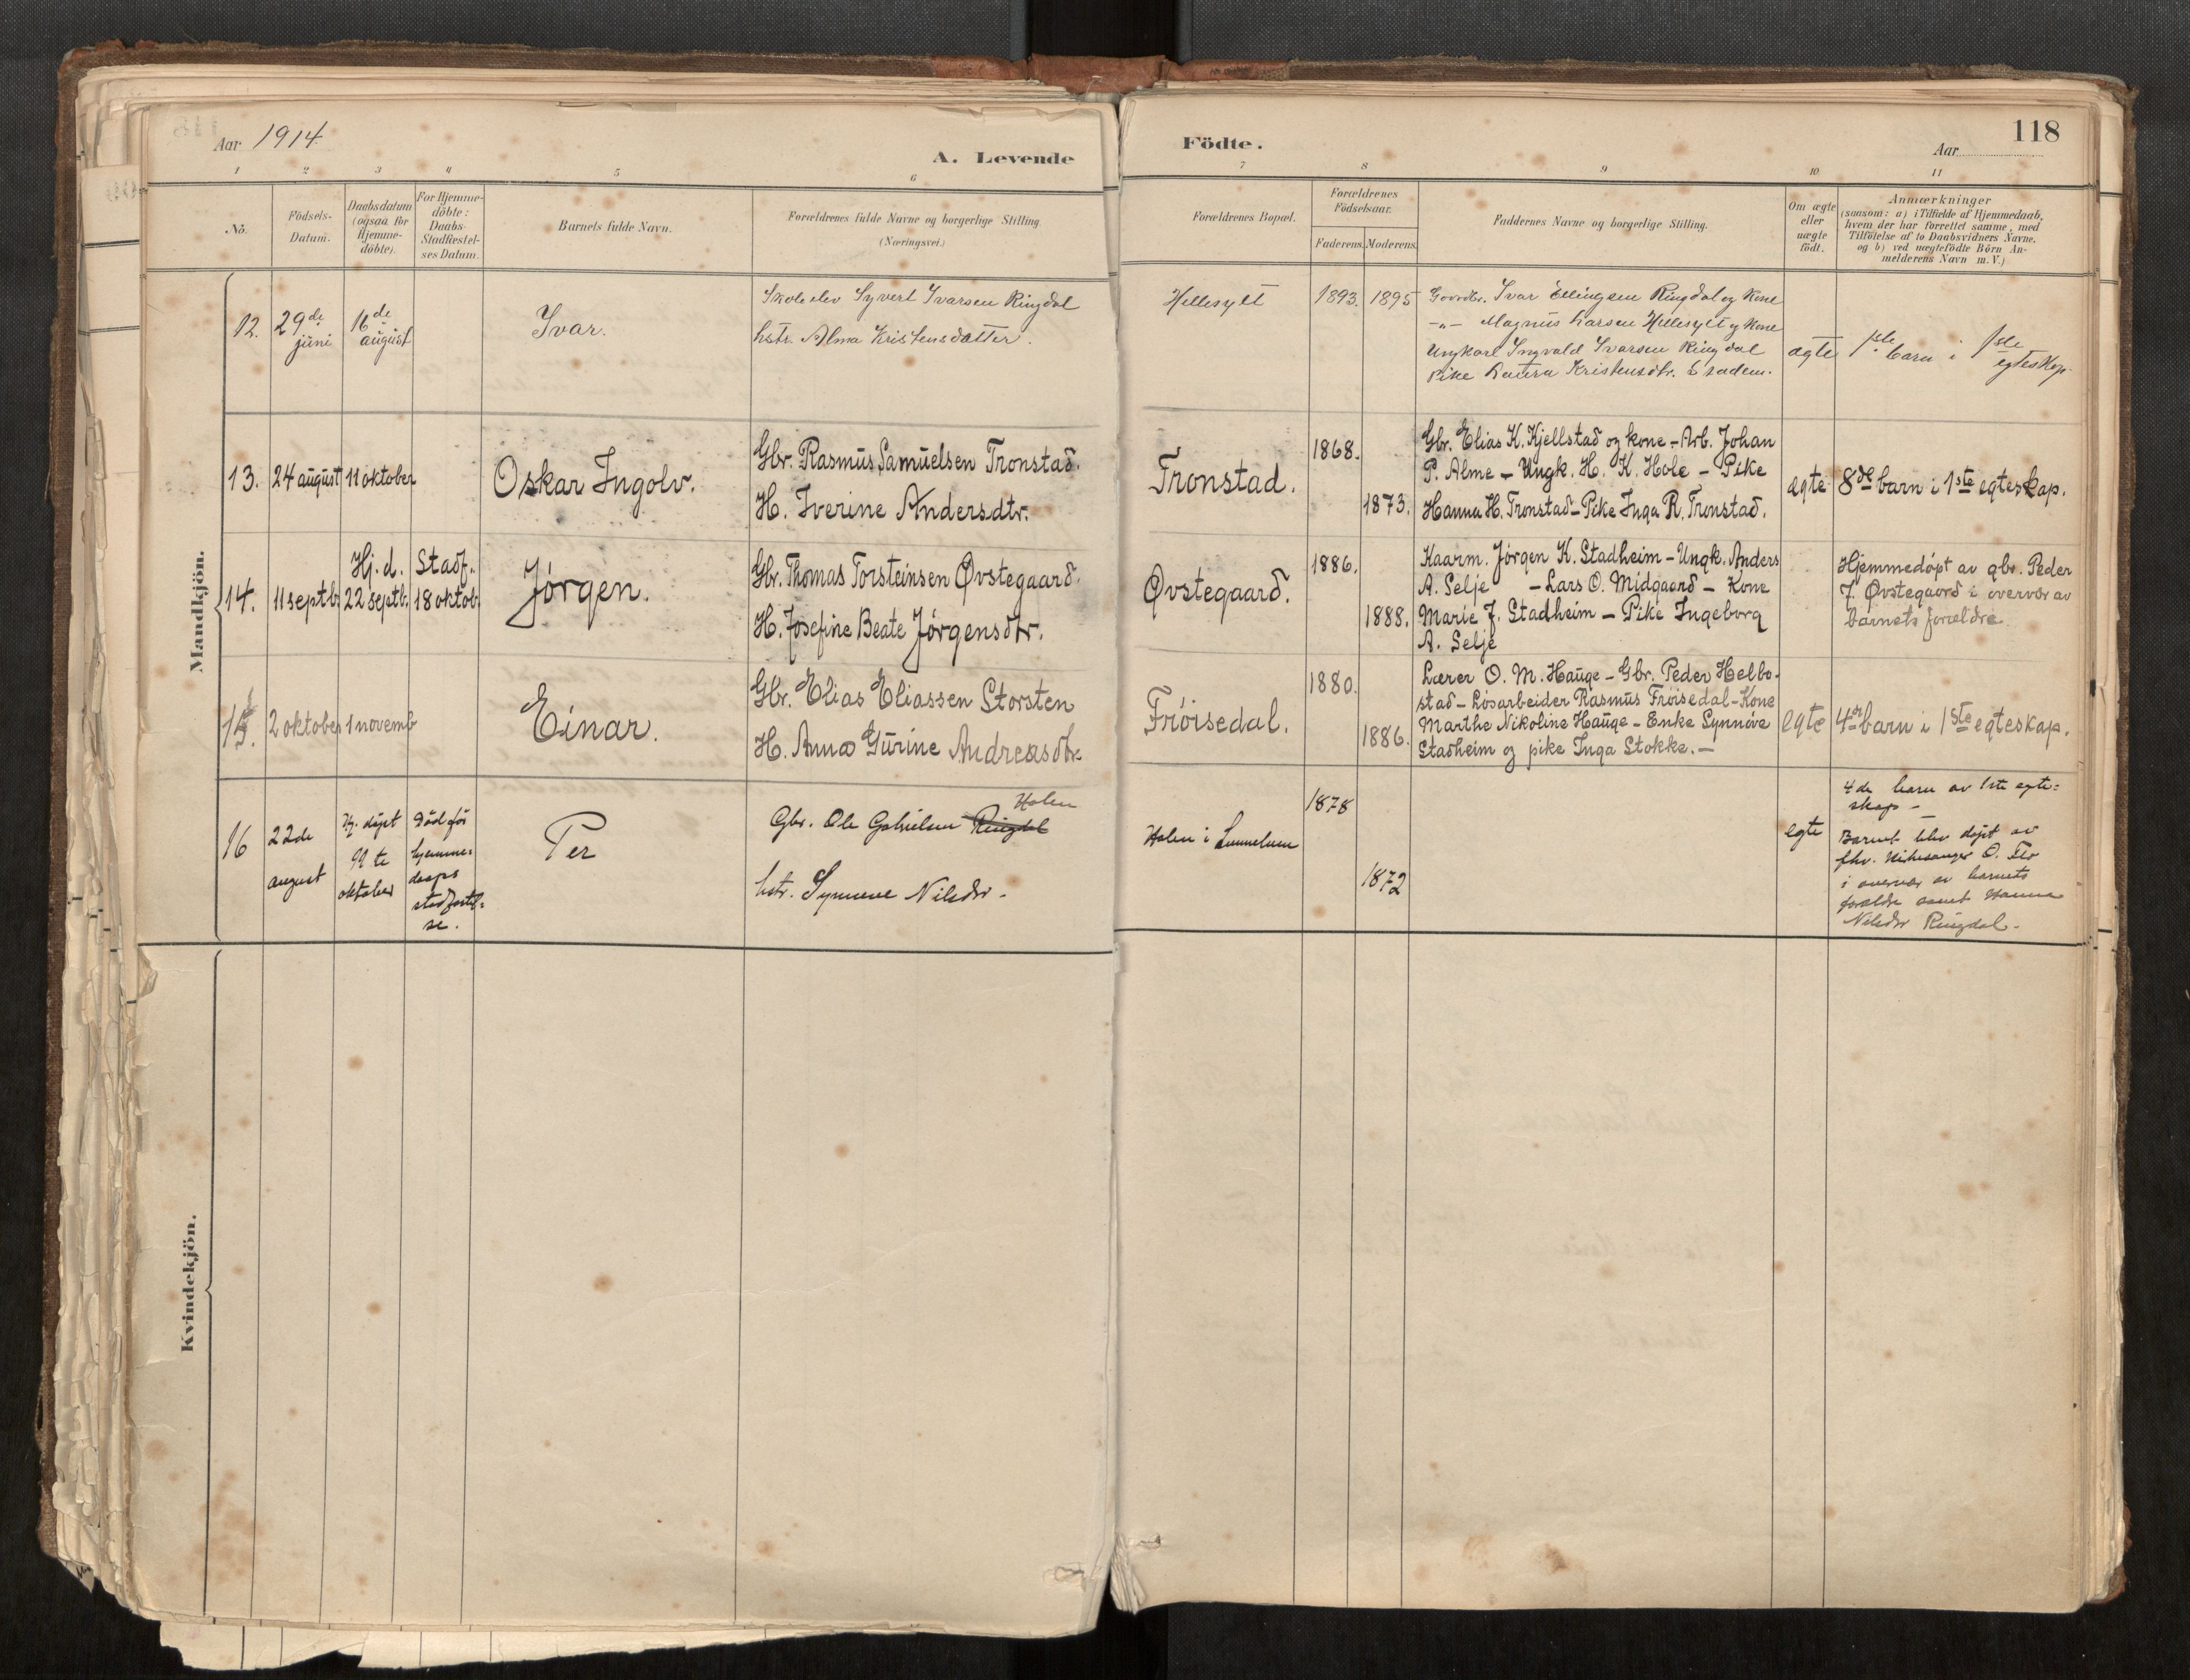 Aar 1914.
A. Levende
Födte.
118
Aar
1 2 3 4 5 6 7 8 9 10 11
No.
Födsels-
Datum.
Daabsdatum
(ogsaa for
Hjemme-
döbte).
For Hjemme-
döbte:
Daabs-
Stadfæstel-
ses Datum.
Barnets fulde Navn.
Forældrenes fulde Navne og borgerlige Stilling.
(Næringsvei.)
Forældrenes Bopæl.
Forældrenes
Födselsaar.
Faderens. Moderens.
Faddernes Navne og borgerlige Stilling.
Om ægte
eller
uægte
födt.
Anmærkninger
(saasom: a) i Tilfælde af Hjemmedaab,
hvem der har forrettet samme, med
Tilföielse af to Daabsvidners Navne,
og b) ved uægtefödte Börn An-
melderens Navn m. V.)
Mandkjön.
12.
29de
juni
16de
august
Ivar.
Skoleelev Syvert Ivarsen Ringdal
hstr. Alma Kristensdatter.
Hellesylt
1893. 1895
Gaardbr. Ivar Ellingsen Ringdal og Kone
-"- Magnus Larsen Hellesylt og Kone
Ungkarl Ingvald Ivarsen Ringdal
Pike Laura Kristensdtr. Stadem.
ægte
1ste barn i 1ste
egteskap.
13.
24 august
11 oktober
Oskar Ingolv.
Gbr. Rasmus Samuelsen Tronstad.
H. Iverine Andersdtr.
Tronstad.
1868.
1873.
Gbr. Elias K. Kjellstad og kone - Arb. Johan
P. Alme - Ungk. H. K. Hole - Pike
Hanna H. Tronstad - Pike Inga R. Tronstad.
egte
8de barn i 1ste egteskap.
14.
11 septb.
Hj. d.
22 septb.
Stadf.
18 oktob.
Jørgen.
Gbr. Thomas Torsteinsen Øvstegaard.
H. Josefine Beate Jørgensdtr.
Øvstegaard.
1886.
1888.
Kaarm. Jørgen K. Stadheim - Ungk. Anders
A. Selje - Lars O. Midgaard - Kone
Marie J. Stadheim - Pike Ingeborg
A. Selje
Hjemmedøpt av gbr. Peder
J. Øvstegaard i overvær av
barnets forældre.
15.
2 oktober
1 novemb
Einar.
Gbr. Elias Eliassen Storsten
H. Anna Gurine Andreasdtr.
Frøisedal.
1880.
1886.
Lærer O. M. Hauge - Gbr. Peder Helbo-
stad - Løsarbeider Rasmus Frøisedal - Kone
Marthe Nikoline Hauge - Enke Synnøve
Stadheim og pike Inga Stokke. -
egte
4de barn i 1ste egteskap.
16
22de
august
Hj. døpt
oktober
Død før
hjemme=
daaps
stadfæstel=
se.
Per
Holen
Gbr. Ole Gabrielsen Ringdal
hstr. Synneve Nilsdtr.
Holen i Sunnelven
1878
1872
egte
4de barn av 1ste egte=
skap -
Barnet blev døpt av
fhv. Kirkesanger O. Flo
i overvær av barnets
forældre samt Hanna
Nilsdtr Ringdal.
Kvindekjön.